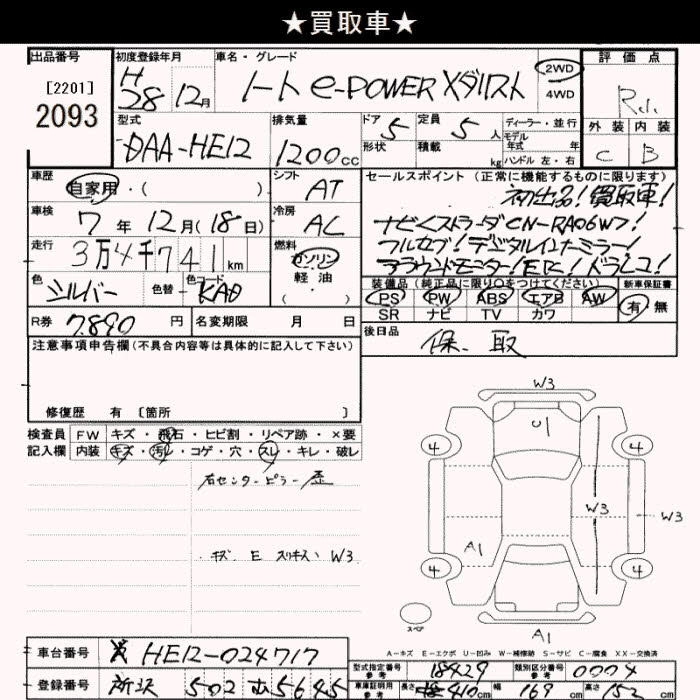 ★買取車★
出品番号 初度登録年月 車名・グレード 評価点
[2201] H 28 12月 ノート e-POWER Xダリスト 2WD R.1.
2093 4WD
型式 排気量 ドア 定員 ディーラー・並行 外装 内装
DAA-HE12 1200cc 5 5人 モデル年式 年 C B
形状 積載 kg ハンドル 左・右
車歴 シフト セールスポイント(正常に機能するものに限ります)
自家用・( ) AT 初出品!買取車!
車検 7年12月(18日) 冷房 AC ナビ<ストラーダCN-RA06W>!
走行 3万4千741km 燃料 フルカプ!デジタルインナーミラー!
ガソリン アラウンドモニター!ETC!ドラレコ!
色 色替 色コード 軽油 装備品(純正品に限り○をつけてください) 新車保証書
シルバー KAD ( ) PS PW ABS エアB AW 有 無
SR ナビ TV カワ
R券 7.890円 名変期限 月 日 後日品
保、取
注意事項申告欄(不具合内容等は具体的に記入して下さい)
修復歴 有 [箇所 ]
検査員 FW キズ・飛石・ヒビ割・リペア跡・×要
記入欄 内装 キズ・汚れ・コゲ・穴・スレ・キレ・破レ
右センターピラー歪
キズ、E スリキズ、W3
W3
U1
4 4
W3 W3
A1
4 4
スペア
A1
A-キズ E-エクボ U-凹み W-補修跡 S-サビ C-腐食 XX-交換済
車台番号 HE12-024717 型式指定番号 参考 18429 類別区分番号 参考 0004
登録番号 所沢 502 む 5645 車庫証明用 参考 長さ 410cm 幅 169cm 高さ 152cm